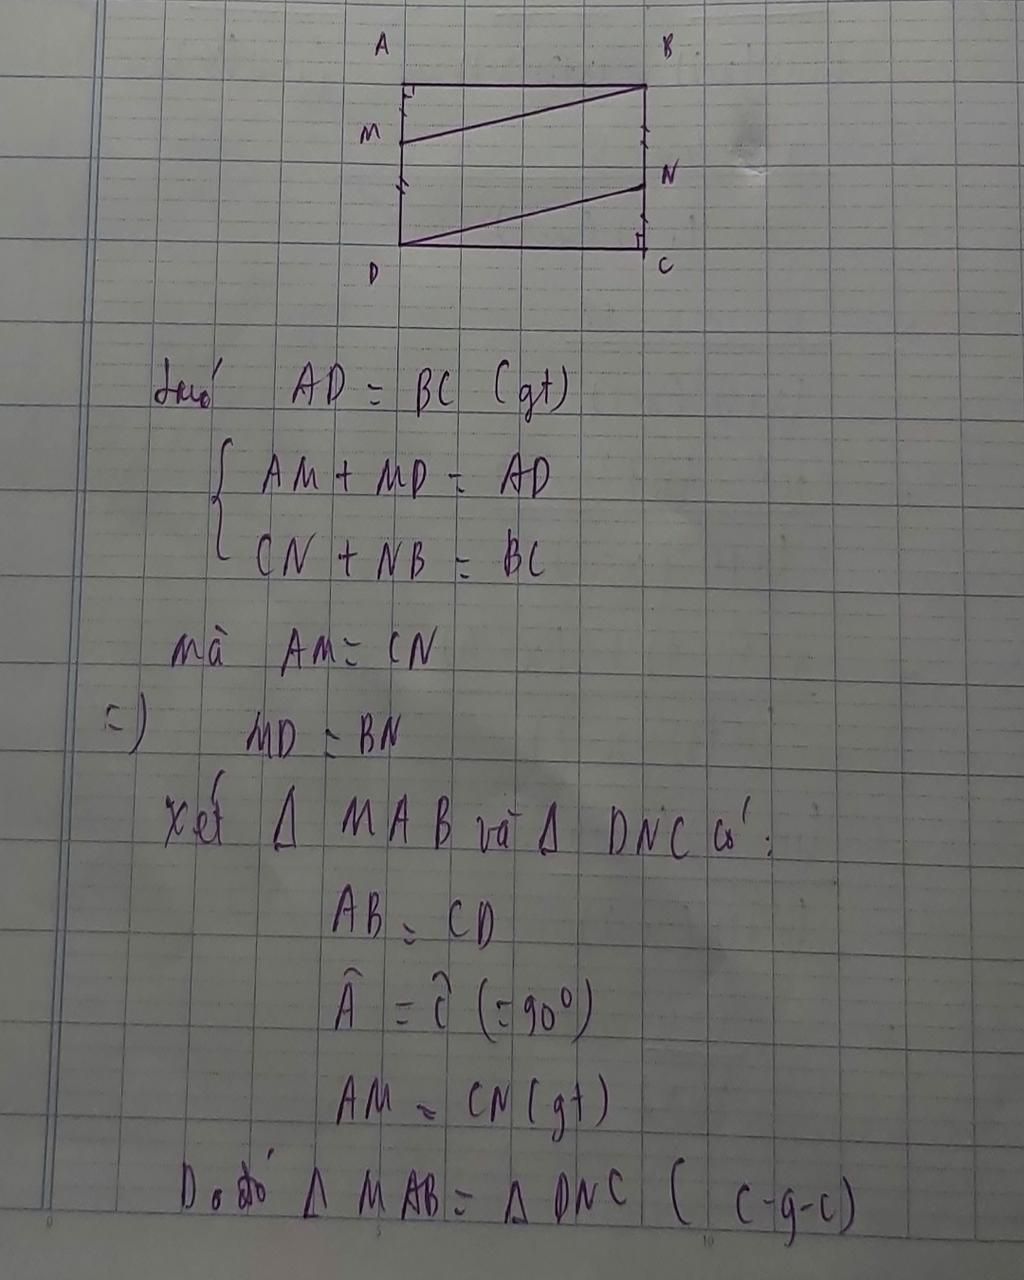 A B
M
N
D
C
AD = BC (gt)
AM + MD = AD
CN + NB = BC
mà AM = CN
=) MD = BN
Xét Δ MAB và Δ DNC có:
AB = CD
Â = Ĉ (= 90⁰)
AM = CN (gt)
Do đó Δ MAB = Δ DNC ( c-g-c)
0 5 10